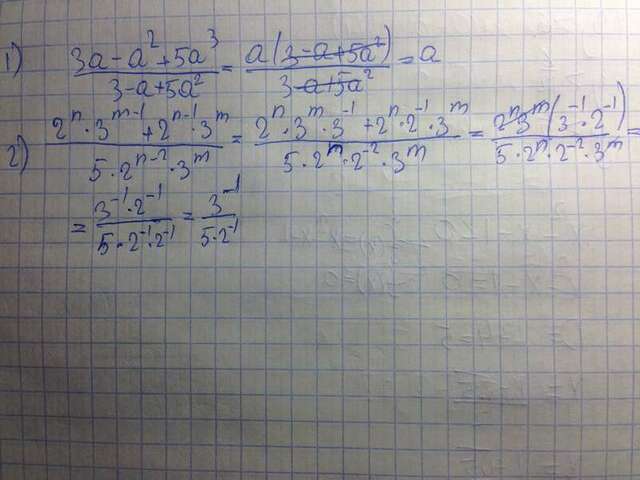 1) (3a - a² + 5a³)/(3 - a + 5a²) = a(3 - a + 5a²)/(3 - a + 5a²) = a
2) (2ⁿ · 3ᵐ⁻¹ + 2ⁿ⁻¹ · 3ᵐ)/(5 · 2ⁿ⁻² · 3ᵐ) = (2ⁿ · 3ᵐ · 3⁻¹ + 2ⁿ · 2⁻¹ · 3ᵐ)/(5 · 2ᵐ · 2⁻² · 3ᵐ) = 2ⁿ 3ᵐ (3⁻¹ · 2⁻¹)/(5 · 2ⁿ · 2⁻² · 3ᵐ) =
= (3⁻¹ · 2⁻¹)/(5 · 2⁻¹ · 2⁻¹) = 3⁻¹/(5 · 2⁻¹)